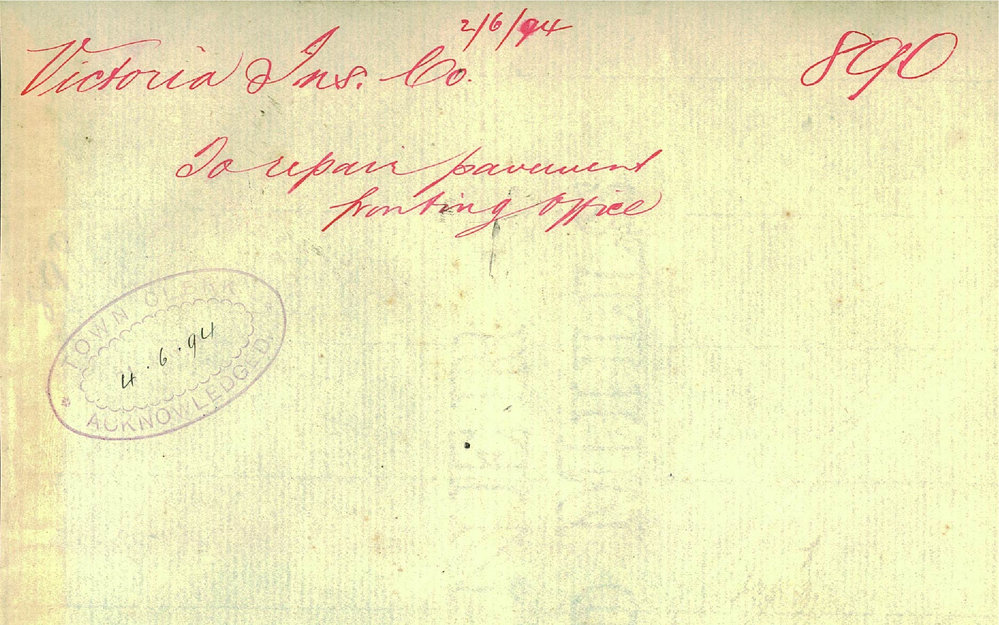 2/6/94
Victoria Ins. Co. 890
To repair pavement
fronting Office
TOWN CLERK
4.6.94
ACKNOWLEDGED.